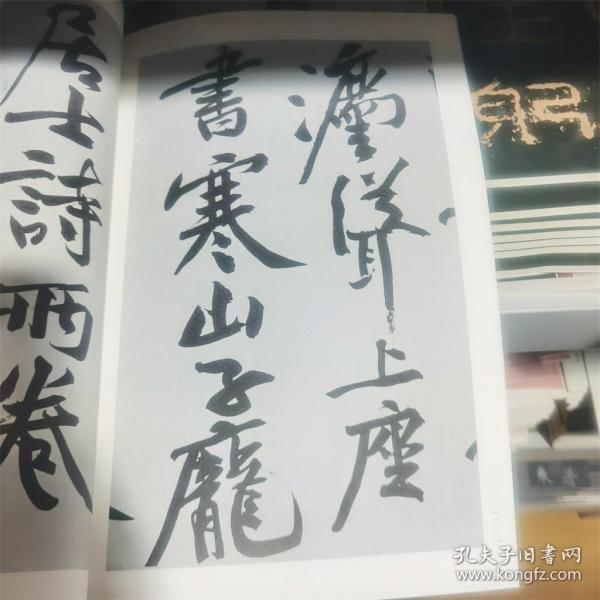 灋聳上座
書寒山子龐
居士詩兩卷
孔夫子旧书网
www.kongfz.com